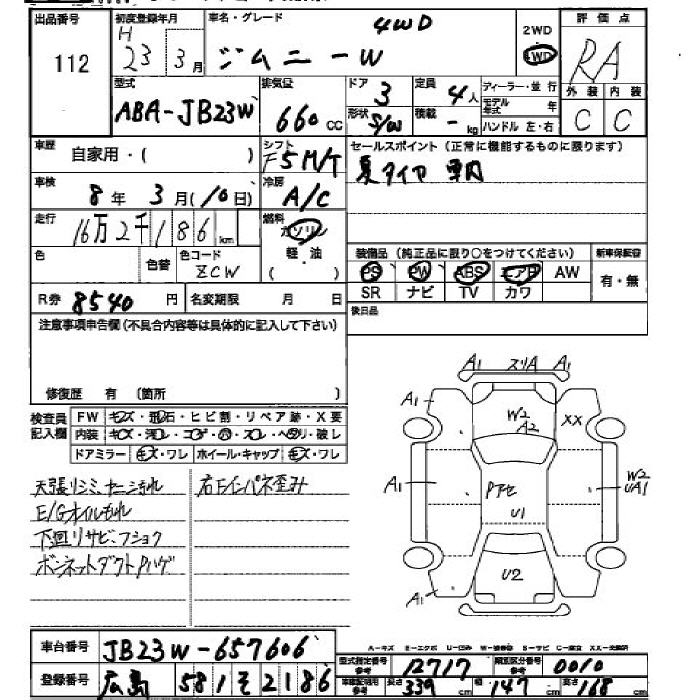 出品番号 初度登録年月 車名・グレード 4WD 2WD 評価点
112 H 23 3月 ジムニーW 4WD RA
型式 排気量 ドア 3 定員 4人 ディーラー・並行 外装 内装
ABA-JB23W 660cc 形状 S/W 積載 -kg モデル年式 年 C C
ハンドル 左・右
車歴 自家用・( ) シフト F5M/T セールスポイント(正常に機能するものに限ります)
車検 8年3月(10日) 冷房 A/C 夏タイヤ 車内
走行 16万2千186km 燃料 ガソリン
色 色替 色コード ZCW 軽・油 ( )
装備品(純正品に限り○をつけてください) 新車保証書
PS PW ABS エアB AW 有・無
R券 8540円 名変期限 月 日 SR ナビ TV カワ
後日品
注意事項申告欄(不具合内容等は具体的に記入して下さい)
修復歴 有 (箇所 )
検査員記入欄 FW キズ・飛石・ヒビ割・リペア跡・X要
内装 キズ・汚レ・コゲ・穴・スレ・ヘタリ・破レ
ドアミラー キズ・ワレ ホイール・キャップ キズ・ワレ
天張リシミ、ヤニ汚れ 右Fインパネ歪み
E/Gオイルもれ
下回リサビ・フショク
ボンネットダクトPハゲ
A1 スリA A1
A1 W2 A2 XX
A1 Pアセ U1 W2 UA1
A1 U2
車台番号 JB23W-657606
A-キズ E-エクボ U-凹み
登録番号 広島 581 そ 2186
型式指定番号 参考 12717 類別区分番号 参考 0010
長さ 339cm 幅 147cm 高さ 168cm